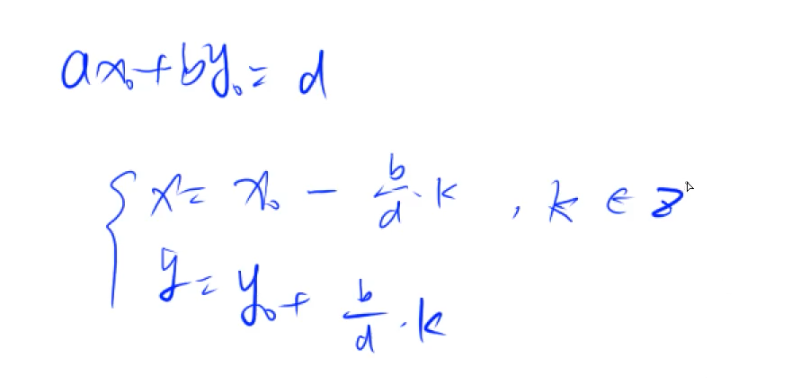 ax₀+by₀= d
{ x= x₀ - b/d · k , k ∈ Z
y= y₀+ b/d · k